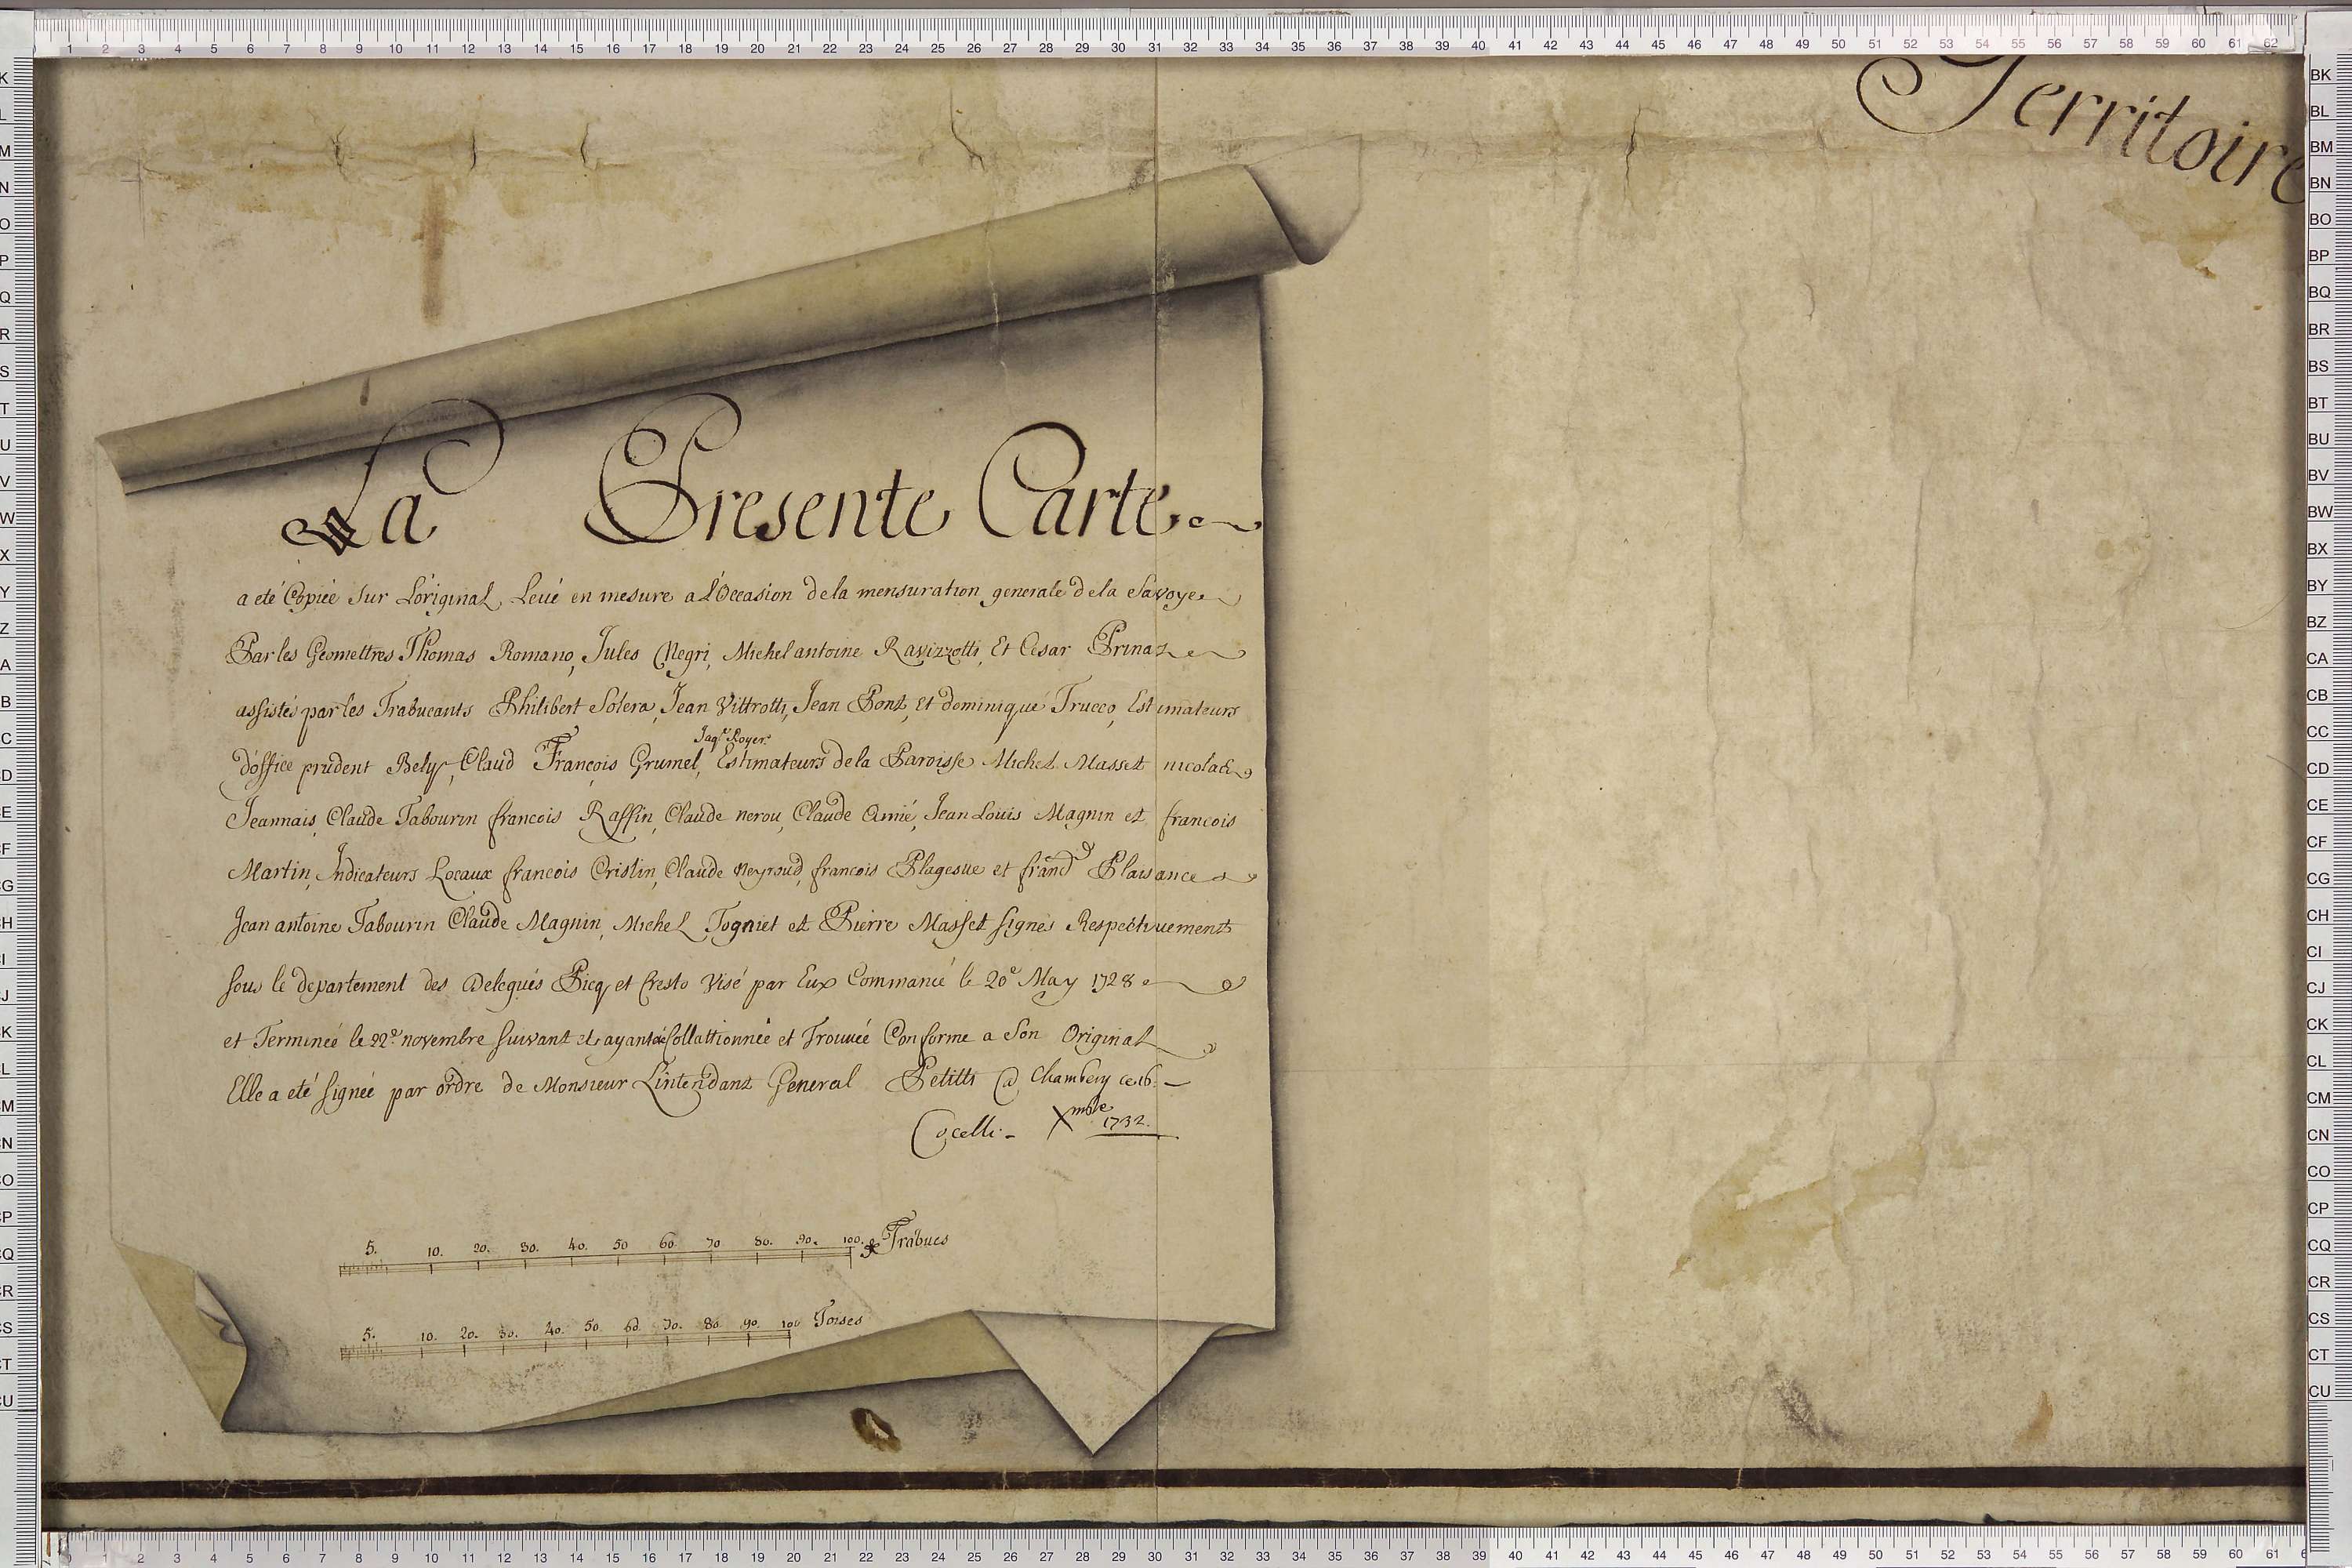 Territoire
La Presente Carte
a eté Copiée sur L'original, Levé en mesure a L'Occasion de la mensuration generale de la Savoye
Par les Geomettres Thomas Romano, Jules Negri, Michel antoine Ravizzotti, Et Cesar Prina
assistés par les Trabucants Philibert Solera, Jean Vittrotti, Jean Pont, Et dominique Trucco, Estimateurs
Jaqs. Royer.
d'office prudent Bely, Claud François Grumel, Estimateurs de la Paroisse Michel Masset nicolas
Jeannais, Claude Tabourin francois Raffin, Claude nerou, Claude Amié, Jean Loüis Magnin et francois
Martin, Indicateurs Locaux francois Cristin, Claude Neyroud, francois Plagesue et Plaisance
Jean antoine Tabourin Claude Magnin, Michel Togniet et Pierre Masset signés Respectivement
sous le departement des Delegués Picq et Cresto Visé par Eux Commancé le 20e May 1728
et Terminée le 22e novembre suivant et ayant Collattionnée et Trouvée Conforme a Son Original
Elle a eté signée par ordre de Monsieur L'intendant General Petitti a Chambery ce 16.
Cocelli. Xmbre 1732.
5. 10. 20. 30. 40. 50 60. 70 80. 90. 100. Trabucs
5. 10. 20. 30. 40. 50. 60. 70. 80. 90. 100 Toises